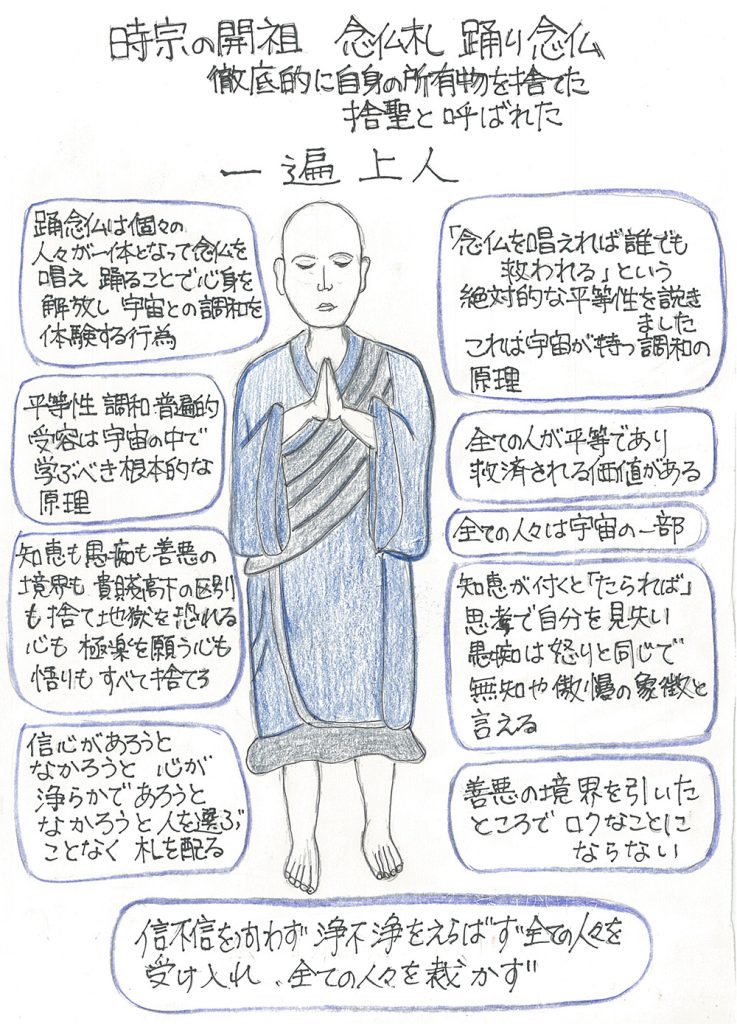 時宗の開祖 念仏札 踊り念仏
徹底的に自身の所有物を捨てた
捨聖と呼ばれた
一遍上人
踊念仏は個々の
人々が一体となって念仏を
唱え 踊ることで心身を
解放し 宇宙との調和を
体験する行為
平等性 調和 普遍的
受容は宇宙の中で
学ぶべき根本的な
原理
知恵も愚痴も善悪の
境界も 貴賤高下の区別
も捨て地獄を恐れる
心も 極楽を願う心も
悟りも すべて捨てろ
信心があろうと
なかろうと 心が
浄らかであろうと
なかろうと人を選ぶ
ことなく 札を配る
「念仏を唱えれば誰でも
救われる」という
絶対的な平等性を説き
ました
これは宇宙が持つ調和の
原理
全ての人が平等であり
救済される価値がある
全ての人々は宇宙の一部
知恵が付くと「たられば」
思考で自分を見失い
愚痴は怒りと同じで
無知や傲慢の象徴と
言える
善悪の境界を引いた
ところで ロクなことに
ならない
信不信を向わず 浄不浄をえらばず 全ての人々を
受け入れ、全ての人々を裁かず